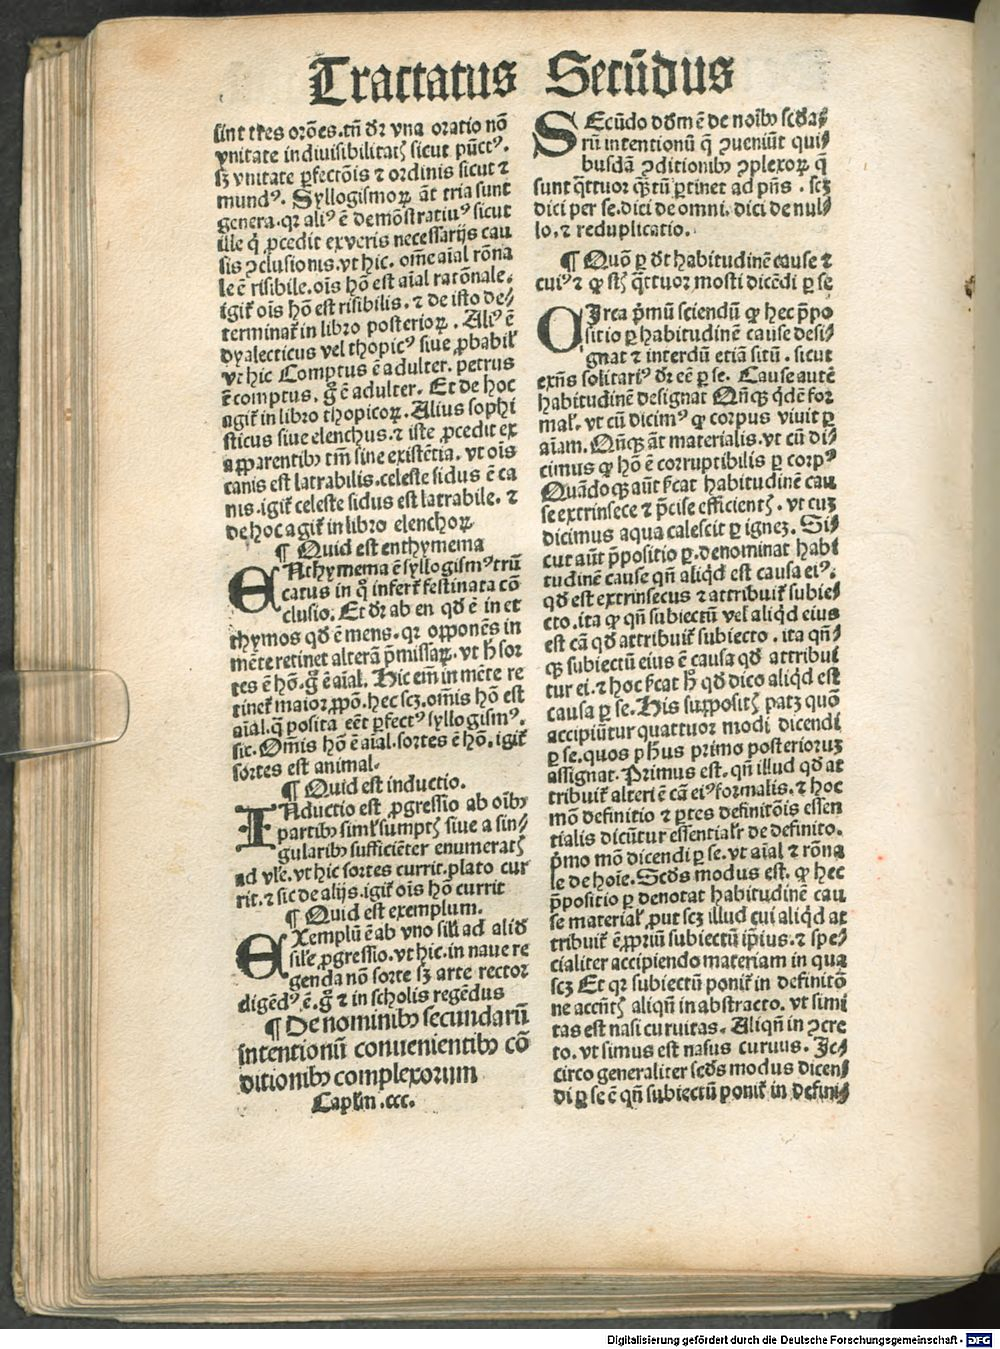 Tractatus Secūdus
sint tres orōes.tñ dr̄ vna oratio nō
vnitate indiuisibilitatꝭ sicut pūctꝰ.
sꝫ vnitate ꝑfectōis ⁊ ordinis sicut ⁊
mundꝰ. Syllogismoꝝ āt tria sunt
genera.qꝛ aliꝰ ē demōstratiuꝰ sicut
ille q̇ ꝓcedit ex veris necessarijs cau
sis ↄclusionis.vt hic. om̄e aīal rōna
le ē risibile.oīs hō est aīal ratōnale.
igit̄ oīs hō est risibilis. ⁊ de isto de⸗
terminat̄ in libro posterioꝝ. Aliꝰ ē
dyalecticus vel thopicꝰ siue ꝓbabil̄
vt hic Comptus ē adulter. petrus
ē comptus. g̊ ē adulter. Et de hoc
agit̄ in libro thopicoꝝ. Alius sophi
sticus siue elenchus.⁊ iste ꝓcedit ex
apparentibꝰ tm̄ sine existētia. vt oīs
canis est latrabilis.celeste sidus ē ca
nis.igit̄ celeste sidus est latrabile. ⁊
de hoc agit̄ in libro elenchoꝝ.
¶ Quid est enthymema
ENthymema ē syllogismꝰ trū
catus in q̊ infert̄ festinata cō
clusio. Et dr̄ ab en qd̄ ē in et
thymos qd̄ ē mens.qꝛ oppōnēs in
mēte retinet alterā p̄missaꝝ.vt h̄ sor
tes ē hō.g̊ ē aīal. Hic em̄ in mēte re
tinet̄ maior ꝓpō.hec scꝫ.om̄is hō est
aīal.q̄ posita eēt ꝑfectꝰ syllogismꝰ.
sic.Om̄is hō ē aīal.sortes ē hō.igit̄
sortes est animal.
¶ Quid est inductio.
INductio est ꝓgressio ab oībꝰ
partibꝰ siml̄ sumptꝭ siue a sin⸗
gularibꝰ sufficiēter enumeratꝭ
ad vl̄e.vt hic sortes currit.plato cur
rit.⁊ sic de alijs.igit̄ oīs hō currit
¶ Quid est exemplum.
EXemplū ē ab vno sil̄i ad aliḋ
sil̄e ꝓgressio.vt hic.in naue re
genda nō sorte sꝫ arte rector
eligēdꝰ ē.g̊ ⁊ in scholis regēdus
¶ De nominibꝰ secundarū
intentionū conuenientibꝰ cō
ditionibꝰ complexorum
Caplm̄ .ccc.
SEcūdo dōm ē de noībꝰ scd̄a⸗
rū intentionū q̄ ↄueniūt qui⸗
busdā ↄditionibꝰ ↄplexoꝝ q̄
sunt q̄ttuor q̄ꝫtū ꝑtinet ad pñs . scꝫ
dici per se.dici de omni.dici de nul⸗
lo.⁊ reduplicatio.
¶ Quō ꝑ dīt habitudinē cause ⁊
cuiꝰ ⁊ ꝙ st̄ q̄ttuor modi dicēdi ꝑ se
CIrca p̄mū sciendū ꝙ hec p̄po
sitio ꝑ habitudinē cause desi⸗
gnat ⁊ interdū etiā sitū . sicut
exñs solitariꝰ dr̄ eē ꝑ se. Cause autē
habitudinē designat Qñqꝫ q̇dē for
mal̄. vt cū dicimꝰ ꝙ corpus viuit ꝑ
aīam.Qñqꝫ āt materialis.vt cū di⸗
cimus ꝙ hō ē corruptibilis ꝑ corpꝰ
Quādoqꝫ aūt sīcat habitudinē cau
se extrinsece ⁊ p̄cise efficientꝭ. vt cuꝫ
dicimus aqua calescit ꝑ igneꝫ. Si⸗
cut aūt p̄positio ꝑ.denominat habi
tudinē cause qñ aliq̇d est causa eiꝰ.
qd̄ est extrinsecus ⁊ attribuit̄ subie⸗
cto.ita ꝙ qñ subiectū vel aliq̇d eius
est cā qd̄ attribuit̄ subiecto . ita qñ⸗
qꝫ subiectū eius ē causa qd̄ attribui
tur ei.⁊ hoc sīcat h̄ qd̄ dico aliq̇d est
causa ꝑ se. His suppositꝭ patꝫ quō
accipiūtur quattuor modi dicendi
ꝑ se.quos ph̄us primo posterioruꝫ
assignat. Primus est.qñ illud qd̄ at
tribuit̄ alteri ē cā eiꝰ formalis.⁊ hoc
mō definitio ⁊ ꝑtes definitōis essen
tialis dicūtur essential̄r de definito.
p̄mo mō dicendi ꝑ se.vt aīal ⁊ rōna
le de hoīe. Scd̄s modus est. ꝙ hec
p̄positio ꝑ denotat habitudinē cau
se material̄.ꝓut scꝫ illud cui aliq̇d at
tribuit̄ ē ꝓpriū subiectū ip̄ius.⁊ spe⸗
cialiter accipiendo materiam in qua
scꝫ Et qꝛ subiectū ponit̄ in definitō
ne accñtꝭ aliqñ in abstracto. vt simi
tas est nasi curuitas. Aliqñ in ↄcre
to. vt simus est nasus curuus. Id⸗
circo generaliter scd̄s modus dicen⸗
di ꝑ se ē qñ subiectū ponit̄ in defini⸗
Digitalisierung gefördert durch die Deutsche Forschungsgemeinschaft - DFG